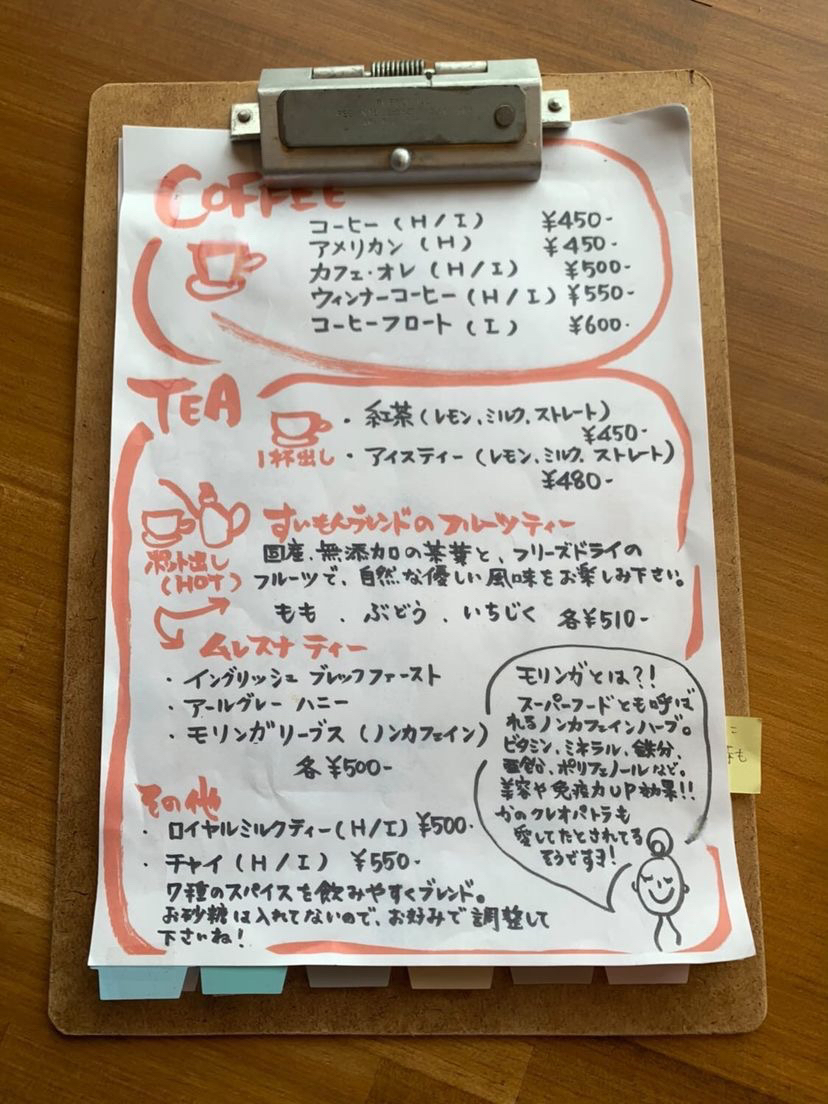 COFFEE
コーヒー (H/I) ¥450-
アメリカン (H) ¥450-
カフェ・オレ (H/I) ¥500-
ウィンナーコーヒー (H/I) ¥550-
コーヒーフロート (I) ¥600-
TEA
1杯出し
・紅茶 (レモン、ミルク、ストレート)
¥450-
・アイスティー (レモン、ミルク、ストレート)
¥480-
ポット出し
(HOT)
すいもんブレンドのフルーツティー
国産、無添加の茶葉と、フリーズドライの
フルーツで、自然な優しい風味をお楽しみ下さい。
もも、ぶどう、いちじく 各¥510-
ムレスナティー
・イングリッシュ ブレックファースト
・アールグレー ハニー
・モリンガリーブス (ノンカフェイン)
各¥500-
モリンガとは?!
スーパーフードとも呼ば
れるノンカフェインハーブ。
ビタミン、ミネラル、鉄分、
亜鉛、ポリフェノールなど。
美容や免疫力UP効果!!
かのクレオパトラも
愛してたとされてる
そうですよ!
その他
・ロイヤルミルクティー (H/I) ¥500-
・チャイ (H/I) ¥550-
7種のスパイスを飲みやすくブレンド。
お砂糖は入れてないので、お好みで調整して
下さいね!